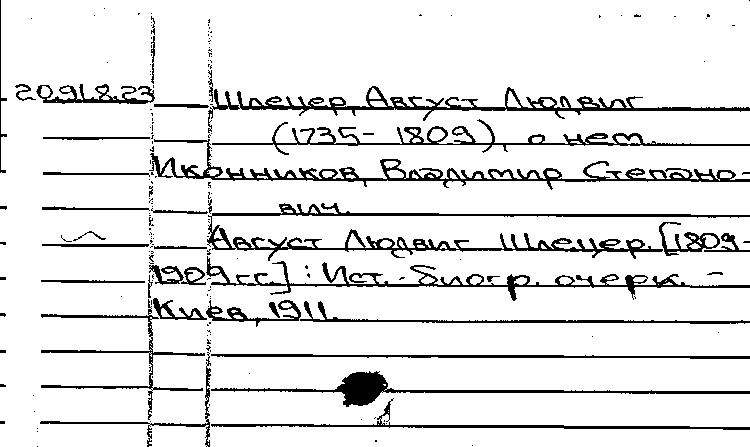 20.91.8.23 Шлецер, Август Людвиг
(1735 - 1809), о нем.
Иконников, Владимир Степано-
вич.
Август Людвиг Шлецер. [1809-
1909 гг.] : Ист.-биогр. очерк. -
Киев, 1911.